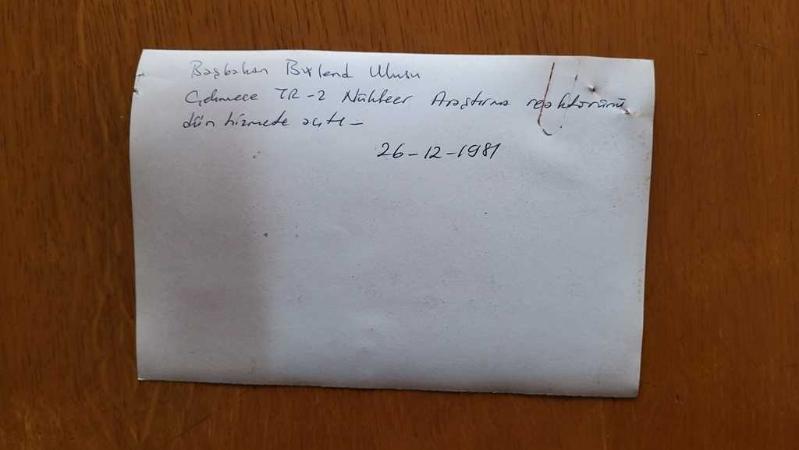 Başbakan Bülend Ulusu
Çekmece TR-2 Nükleer Araştırma reaktörünü
dün hizmete açtı-
26-12-1981